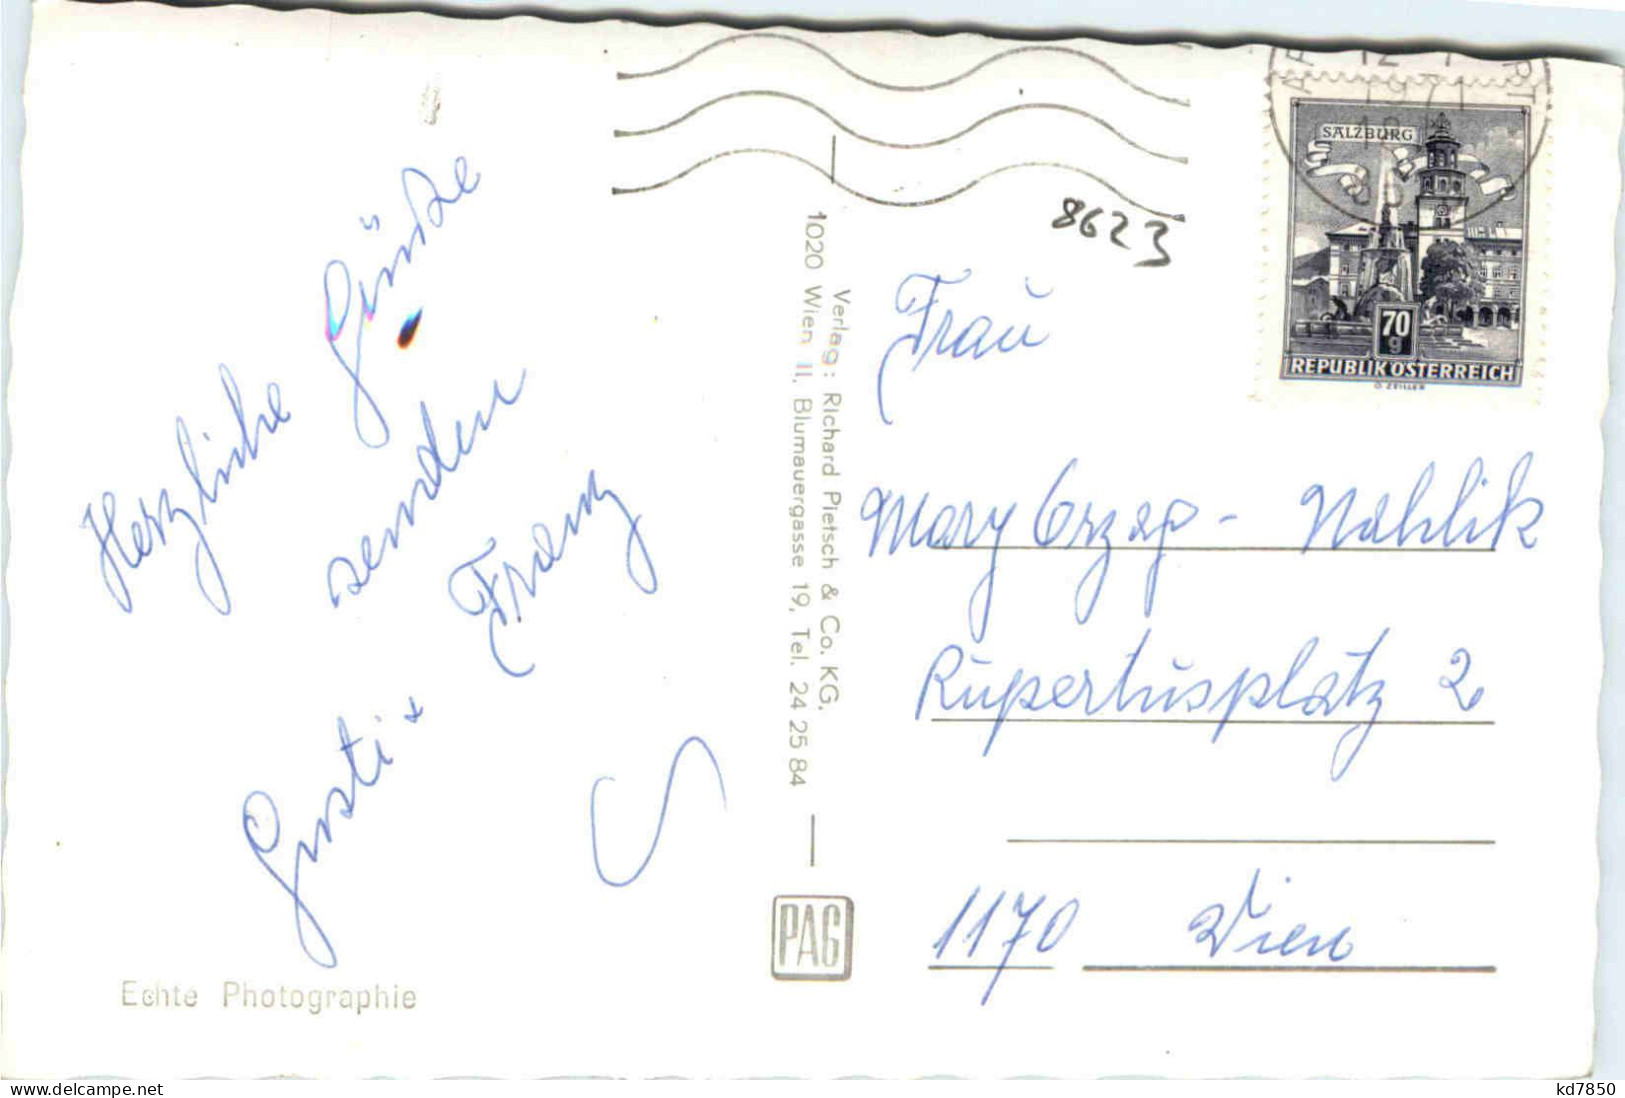 Herzliche Grüße
senden
Gusti + Franz
Echte Photographie
Verlag: Richard Pietsch & Co. KG.
1020 Wien II, Blumauergasse 19, Tel. 24 25 84
PAG
8623
1971
SALZBURG
70
g
REPUBLIK ÖSTERREICH
O. ZEILLER
Frau
Mary Orzag - Nahlik
Rupertusplatz 2
1170 Wien
www.delcampe.net
kd7850